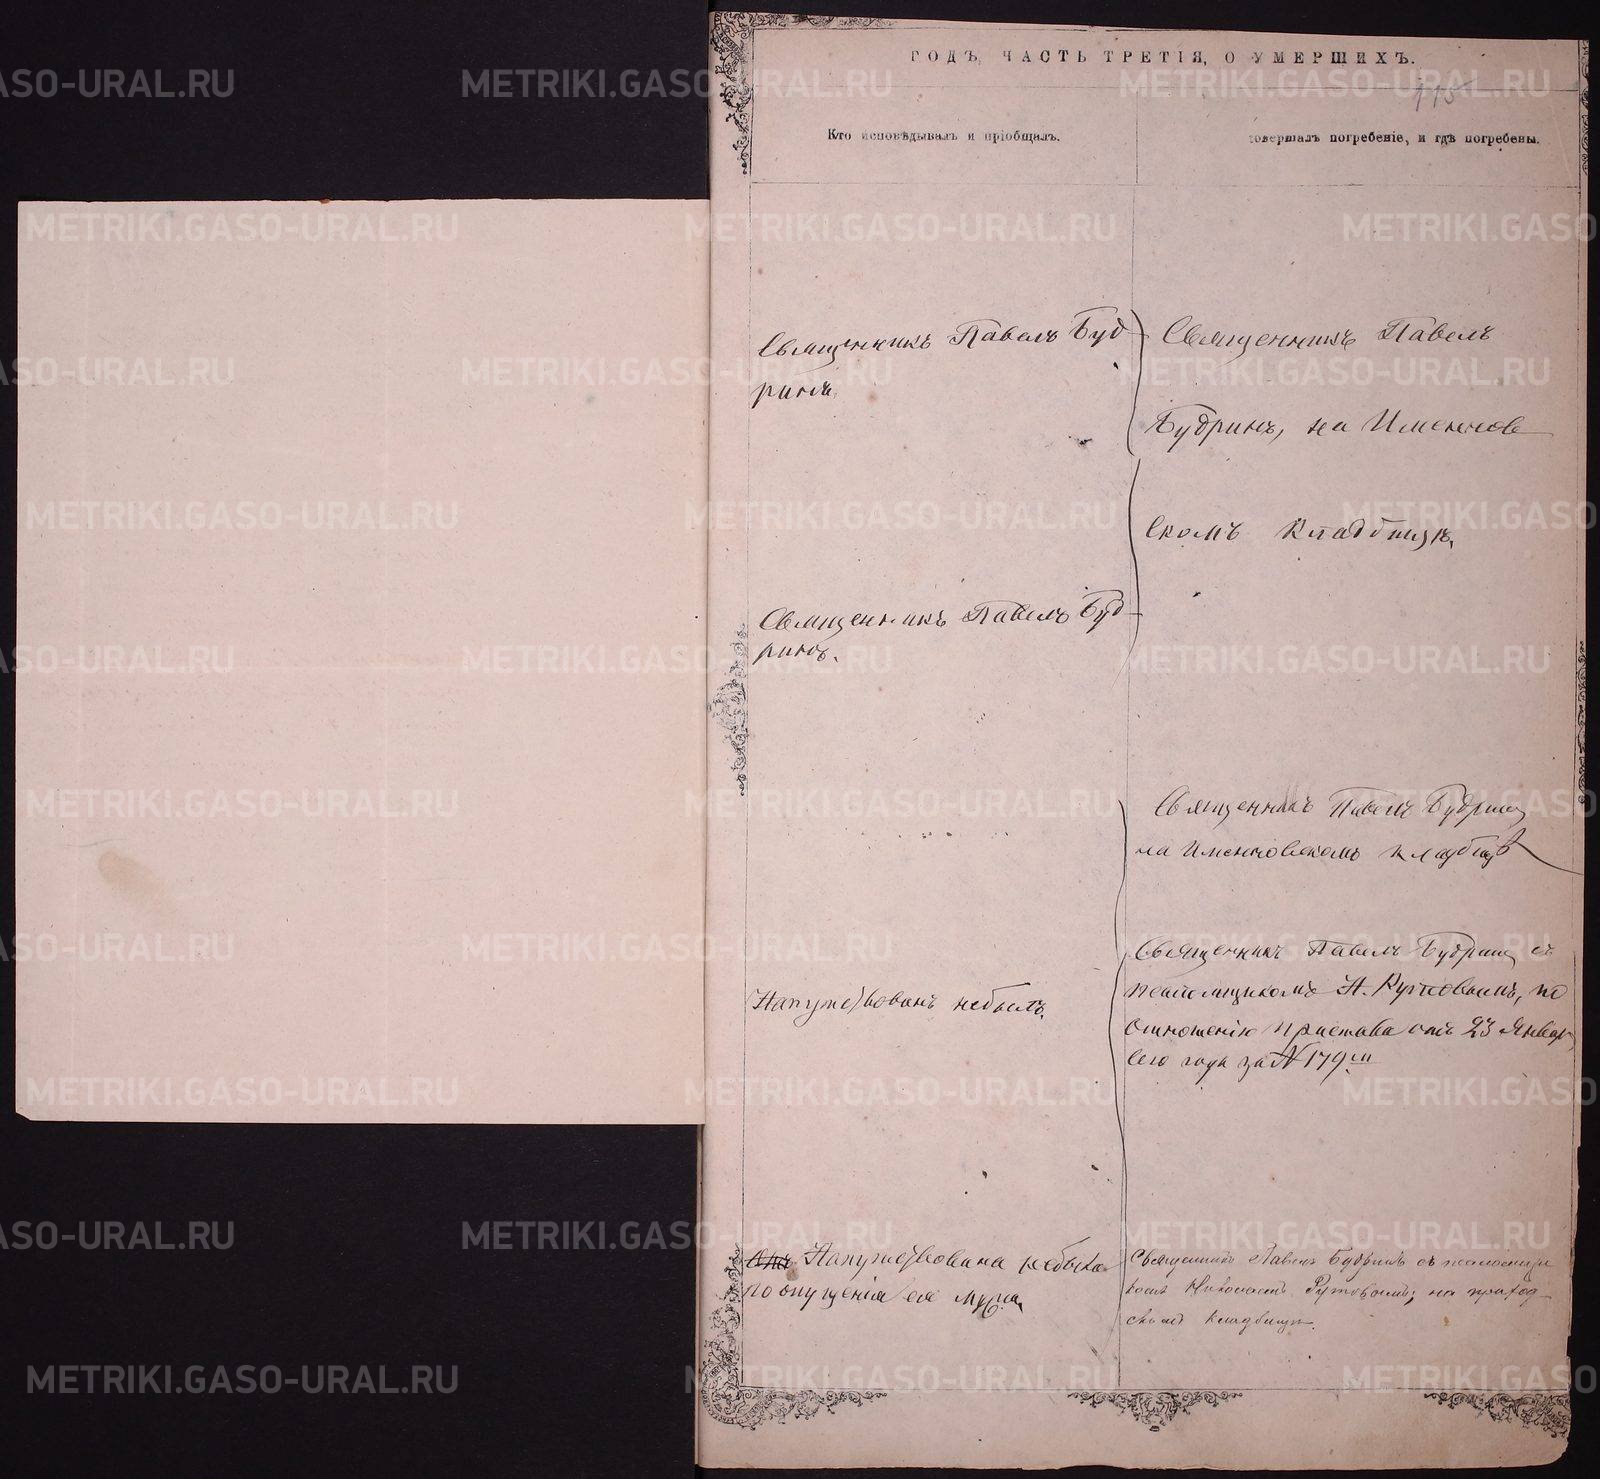 ГОДЪ, ЧАСТЬ ТРЕТІЯ, О УМЕРШИХЪ.
Кто исповѣдывалъ и пріобщалъ.
совершалъ погребеніе, и гдѣ погребены.
Священникъ Павелъ Буд
ринъ.
Священникъ Павелъ
Будринъ, на Именнов
скомъ кладбищѣ.
Священникъ Павелъ Буд
ринъ.
Священникъ Павелъ Будринъ
на Именновскомъ кладбищѣ
Напутствованъ небылъ.
Священникъ Павелъ Будринъ съ
псаломщикомъ Н. Рутковымъ, по
отношенію Пристава отъ 23 Январ
сего года за № 179
Напутствована небыла
по опущенію ея мужа.
Священникъ Павелъ Будринъ съ псаломщи
комъ Николаемъ Рутковымъ; на приход
скомъ кладбищѣ.
METRIKI.GASO-URAL.RU